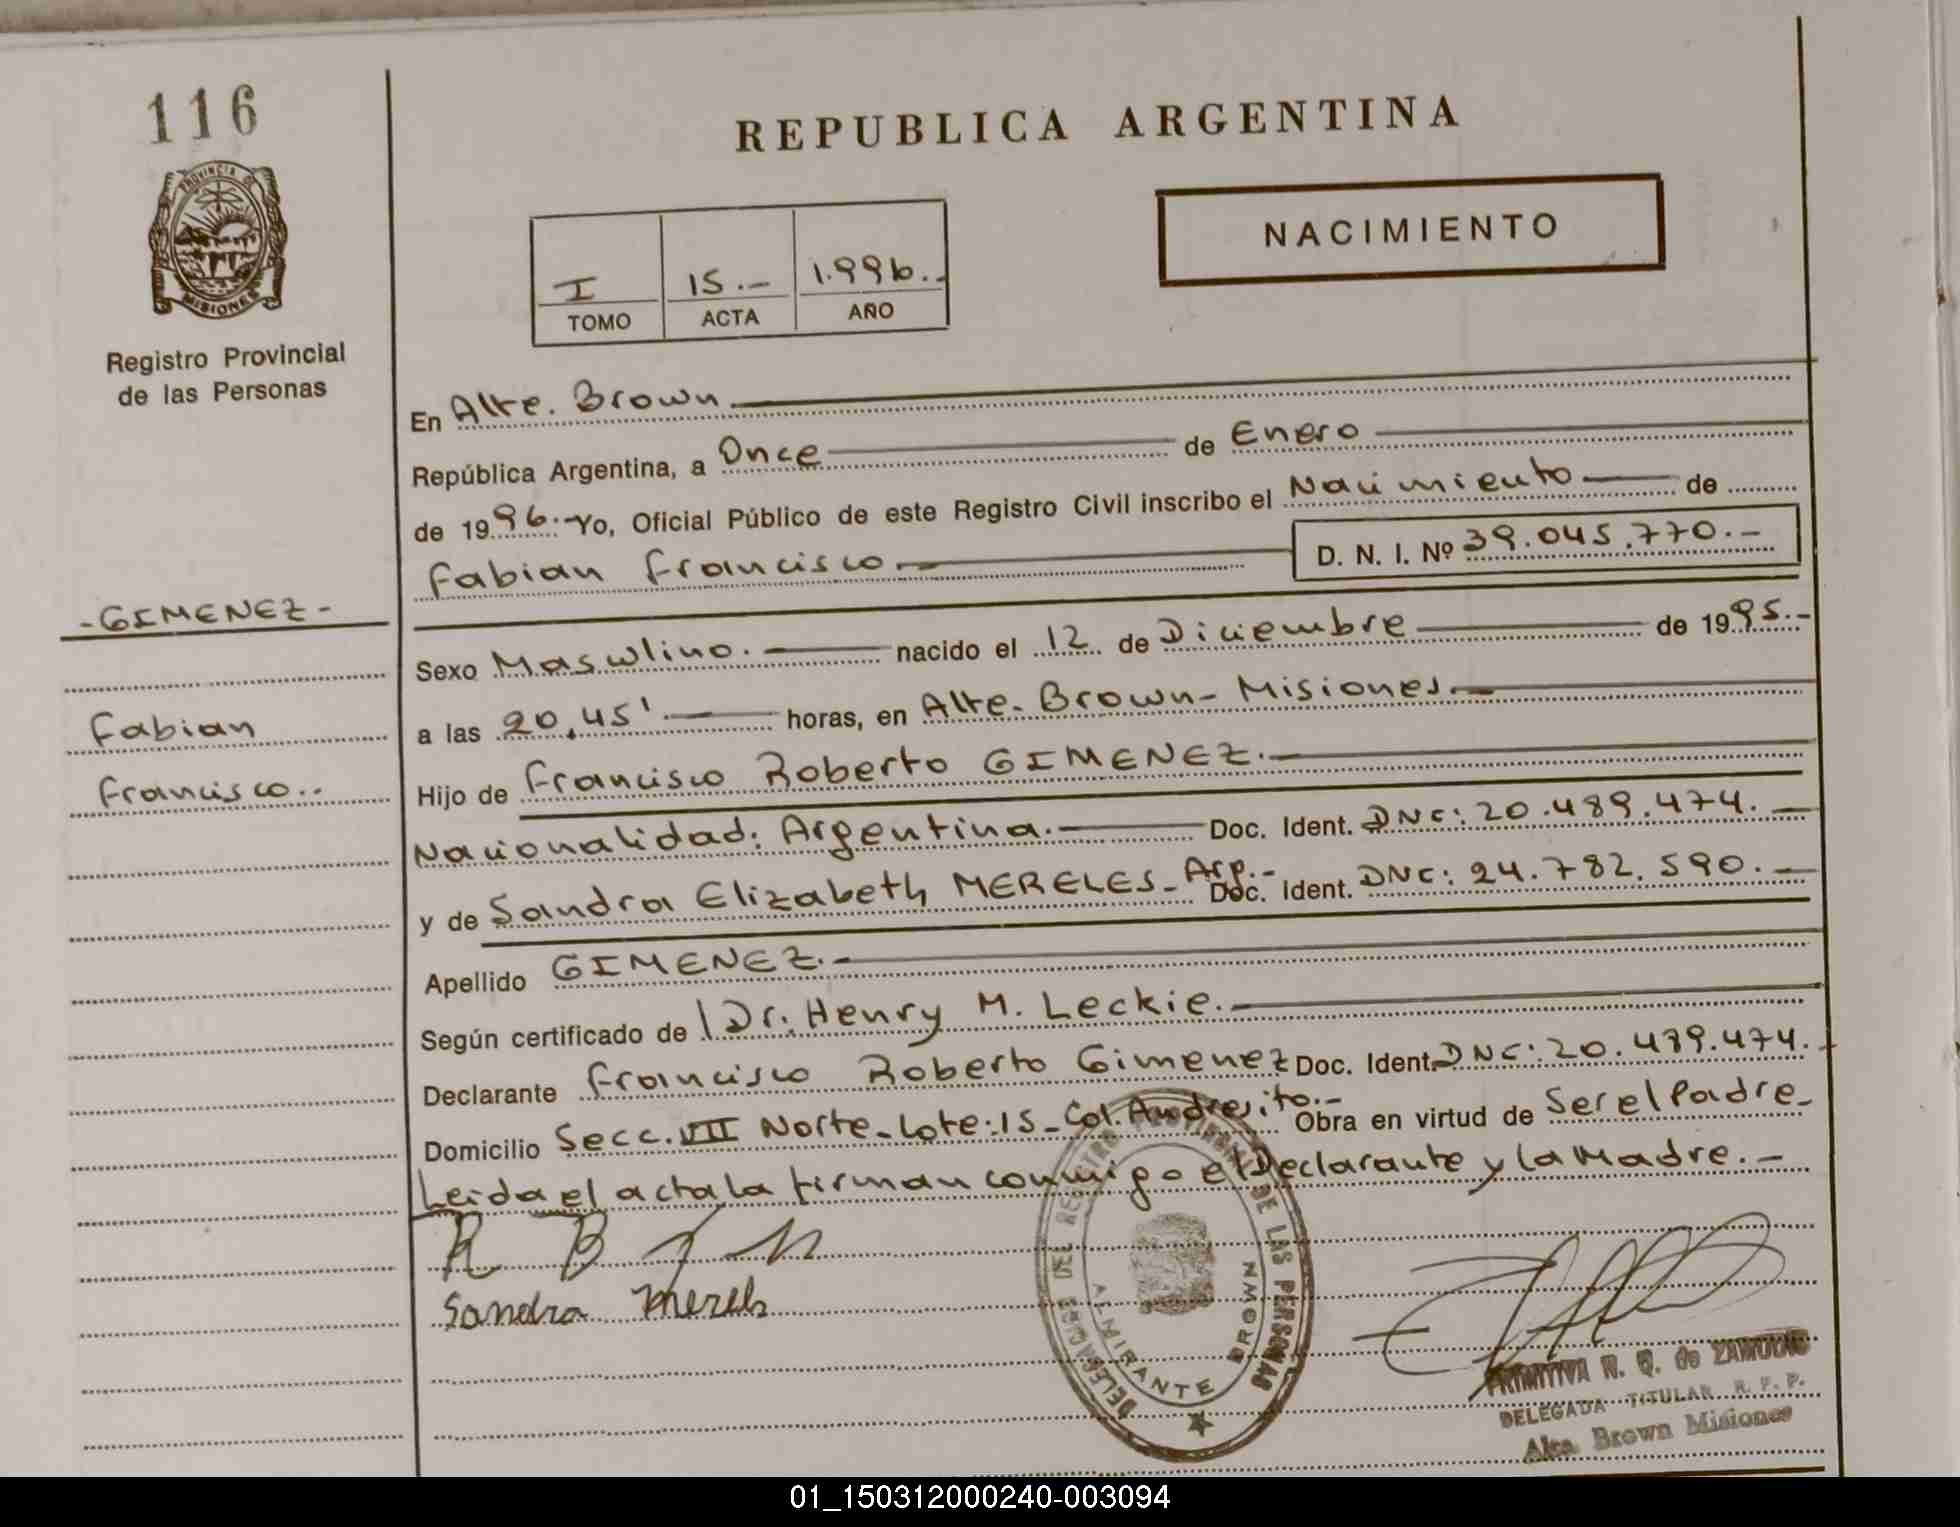 116
PROVINCIA DE
MISIONES
Registro Provincial
de las Personas
REPUBLICA ARGENTINA
NACIMIENTO
I 15.- 1.996.-
TOMO ACTA AÑO
En Alte. Brown
República Argentina, a Once de Enero
de 1996.- Yo, Oficial Público de este Registro Civil inscribo el Nacimiento de
Fabian Francisco.- D. N. I. Nº 39.045.770.-
-GIMENEZ-
Fabian
Francisco..
Sexo Masculino. nacido el 12 de Diciembre de 1995.-
a las 20,45' horas, en Alte. Brown- Misiones.-
Hijo de Francisco Roberto GIMENEZ.-
Nacionalidad: Argentina.- Doc. Ident. DNC: 20.489.474.-
y de Sandra Elizabeth MERELES- Arg.- Doc. Ident. DNC: 24.782.590.-
Apellido GIMENEZ.-
Según certificado de Dr. Henry M. Leckie.-
Declarante Francisco Roberto Gimenez Doc. Ident. DNC: 20.489.474.-
Domicilio Secc. VII Norte- Lote: 15- Col. Andresito.- Obra en virtud de Ser el Padre-
Leida el acta la firman conmigo el Declarante y la Madre.-
Sandra Mereles
DELEGACION DEL REGISTRO PROVINCIAL DE LAS PERSONAS
ALMIRANTE BROWN
PRIMITIVA R. Q. de ZAMUDIO
DELEGADA TITULAR R. P. P.
Alte. Brown Misiones
01_150312000240-003094